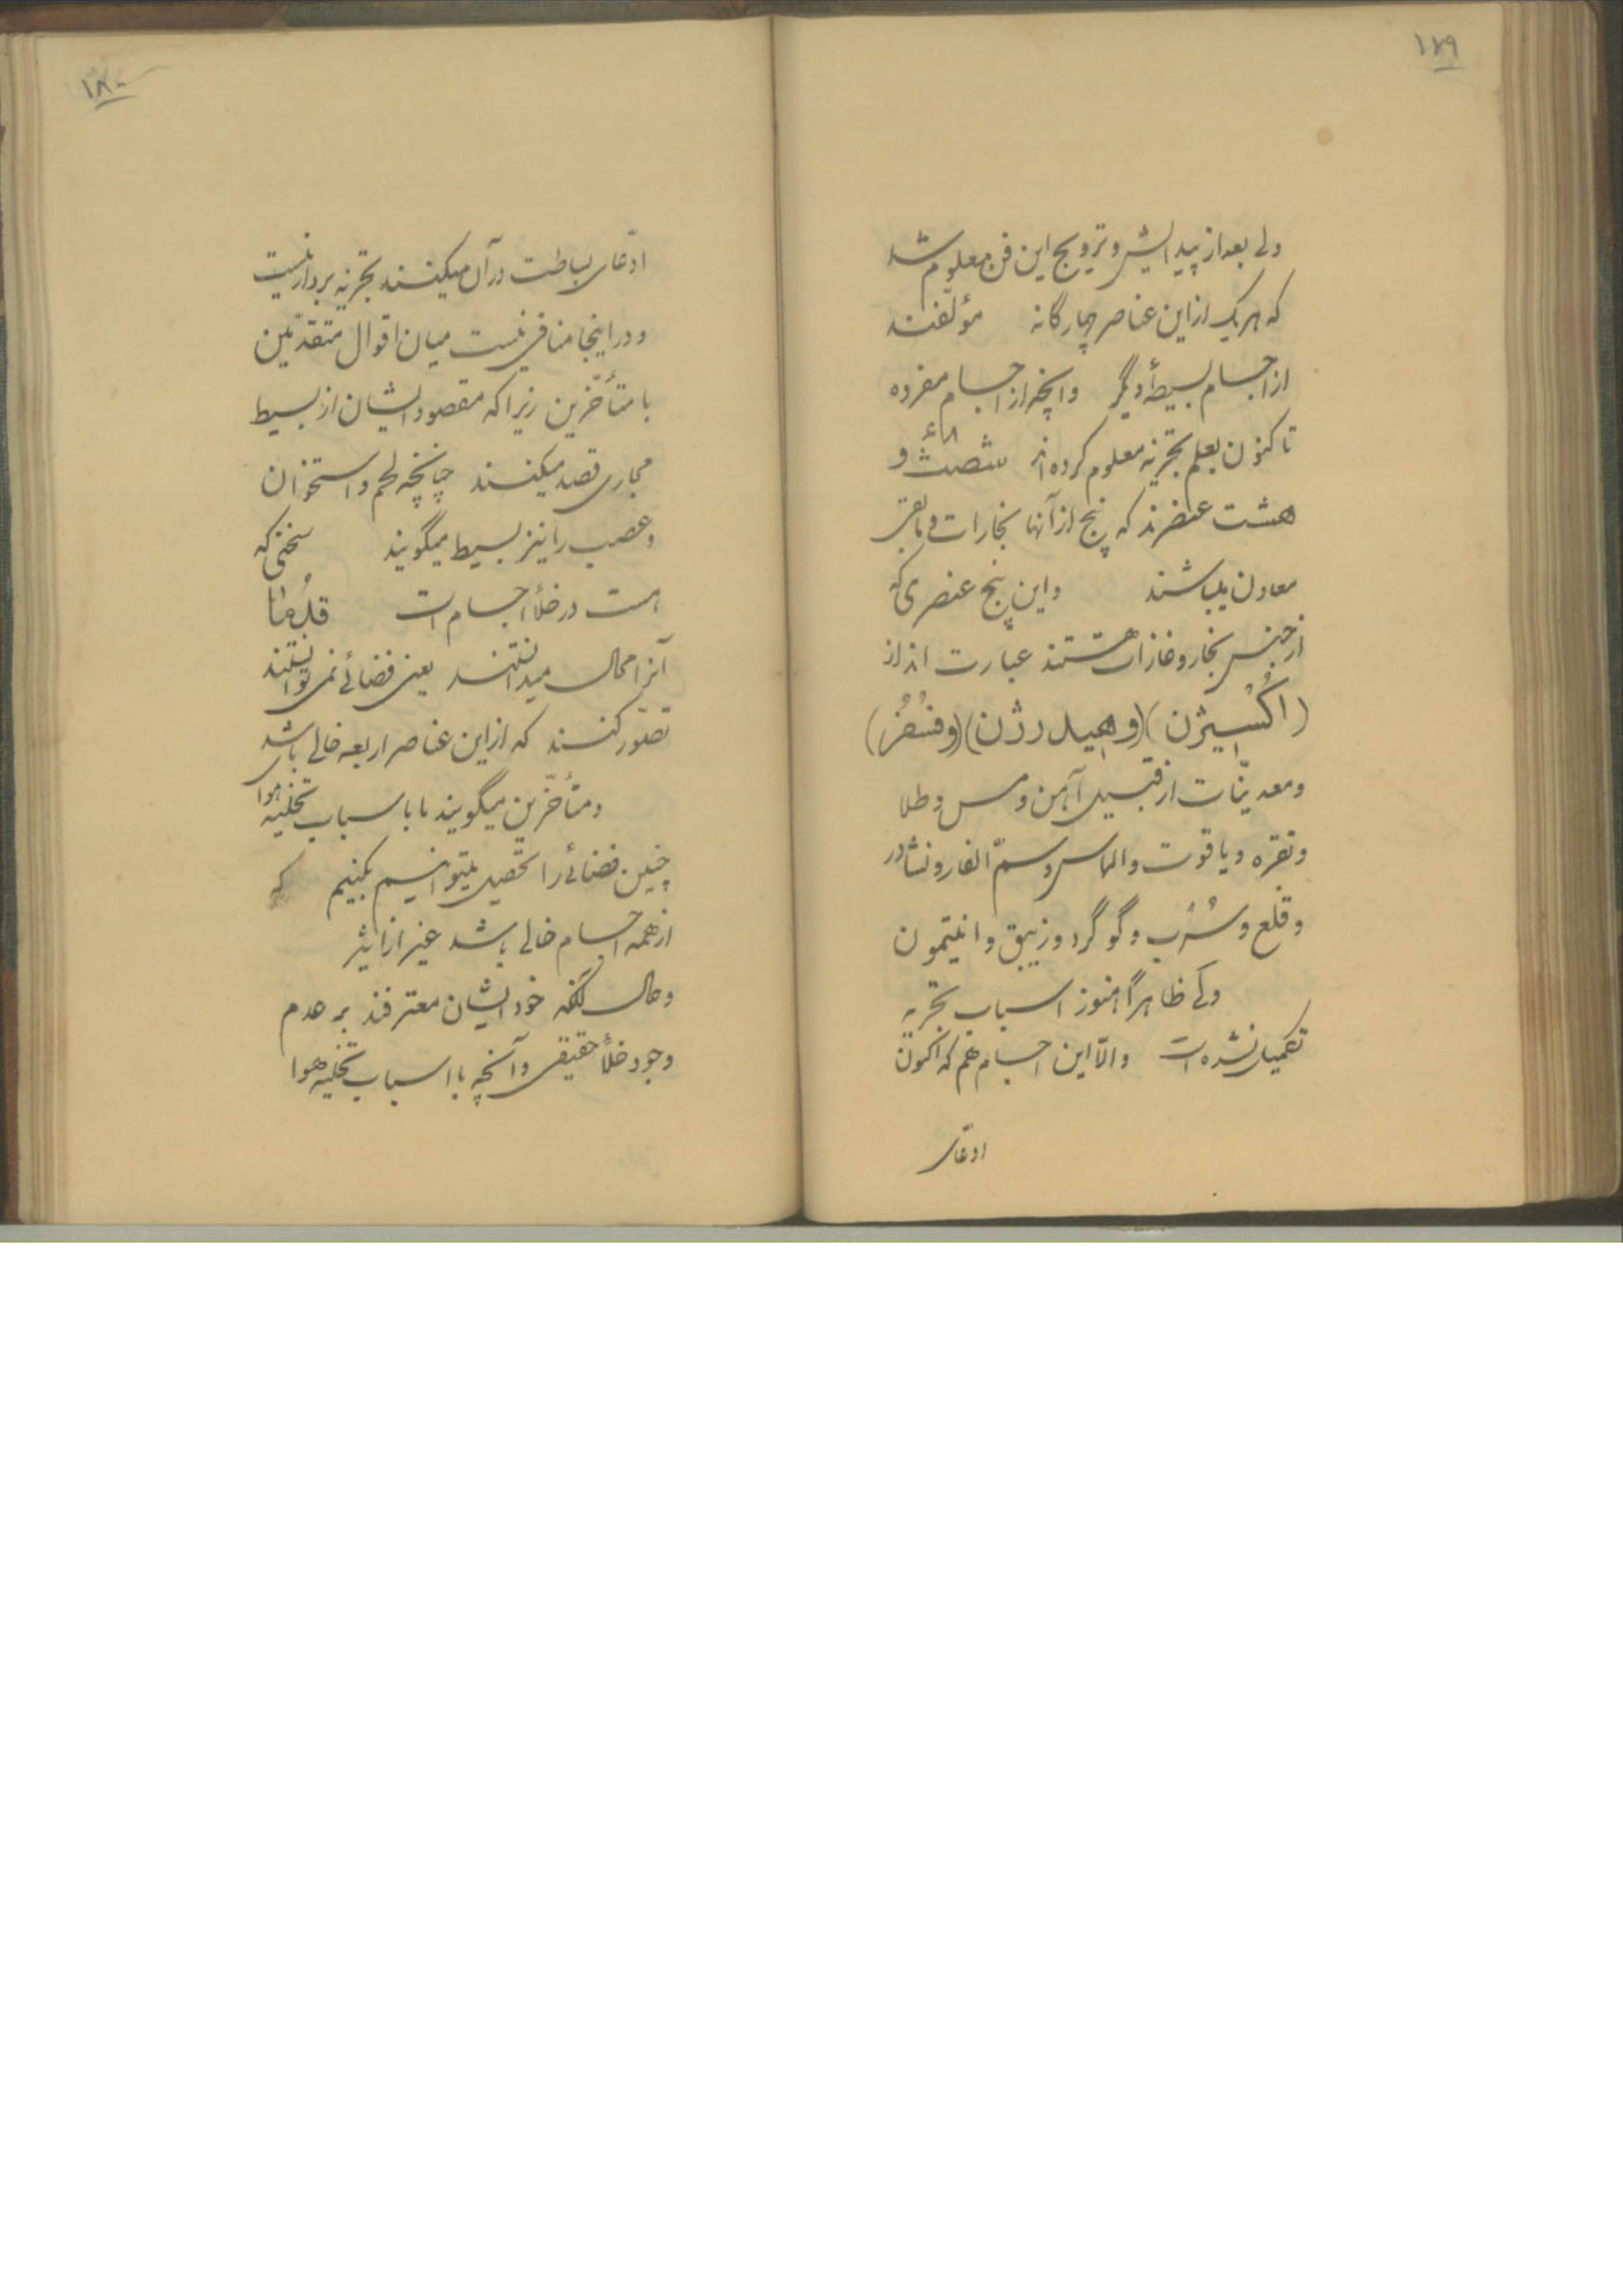 ۱۷۹
ولی بعد از پیدایش و ترویج این فن معلوم شد
که هر یک از این عناصر چهارگانه مؤلفند
از اجسام بسیطهٔ دیگر وانچه از اجسام مفرده
تا کنون بعلم تجزیه معلوم کرده‌اند شصت و
هشت عنصرند که پنج از آنها بخارات و مابقی
معادن میباشند و این پنج عنصری که
از جنس بخار و غازات هستند عبارت اند از
(اُکسیژن) (و هیدرژن) (و فسفُر)
و معدنیّات از قبیل آهن و مس و طلا
و نقره و یاقوت و الماس و سمّ الفار و نشادر
و قلع و سُرُب و گوگرد و زیبق و انتیمون
ولی ظاهراً هنوز اسباب تجزیه
تکمیل نشده است والّا این اجسام هم که اکنون
ادّعای
۱۸۰
ادّعای بساطت در آن میکنند تجزیه بردار نیست
و در اینجا منافی نیست میان اقوال متقدّمین
با متأخّرین زیرا که مقصود ایشان از بسیط
مجازی قصد میکنند چنانچه لحم و استخوان
و عصب را نیز بسیط میگویند سخنی که
هست در خلأ اجسام است قدما
آنرا محال میدانستند یعنی فضائی نمی‌توانستند
تصوّر کنند که از این عناصر اربعه خالی باشد
و متأخّرین میگویند ما با سباب تخلیه هوا
چنین فضائی را تحصیل میتوانیم بکنیم که
از همه اجسام خالی باشد غیر از اثیر
و حال آنکه خود ایشان معترفند بر عدم
وجود خلأ حقیقی و آنچه با اسباب تخلیه هوا